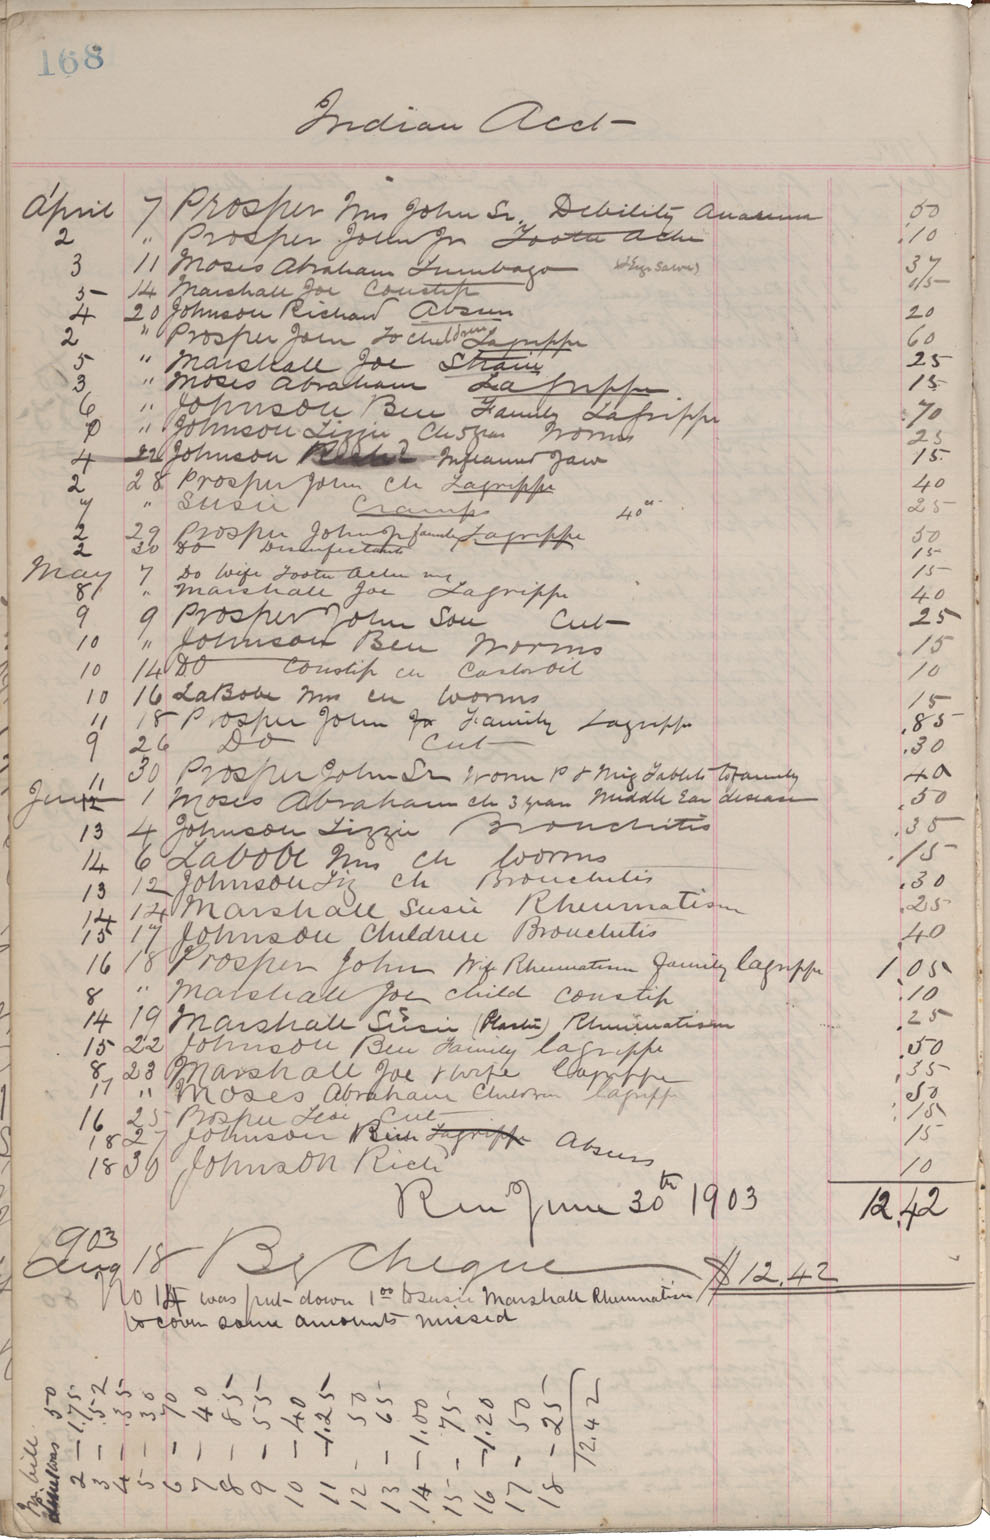 168
Indian Acct
April 1 7 Prosper Mrs John Sr. Debility 50
2 " Prosper John Jr Tooth Ache .10
3 11 Moses Abraham Lumbago 37
5 14 Marshall Joe Constip 15
4 20 Johnson Richard Absces 20
2 " Prosper John children Lagrippe 60
5 " Marshall Joe Strain 25
3 " Moses Abraham La grippe 15
6 " Johnson Ben Family Lagrippe .70
7 " Johnson Lizzie Ch 5 yrs Worms 25
4 22 Johnson Inflamed Jaw 15
2 28 Prosper John Ch Lagrippe 40
7 " Susie Cramps 25
2 29 Prosper John Jr family Lagrippe 50
2 30 Do Disinfectants 15
May 7 Do Wife Tooth Ache 15
8 " Marshall Joe Lagrippe 40
9 9 Prosper John Son Cut 25
10 " Johnson Ben Worms 15
10 14 DO Constip ch Castor oil 10
10 16 LaBobe Mrs ch Worms 15
11 18 Prosper John Jr Family Lagrippe .85
9 26 DO Cut .30
11 30 Prosper John Sr Worm P & Mig Tablets to family 40
June 12 1 Moses Abraham ch 3 years Middle Ear disease .50
13 4 Johnson Lizzie Bronchitis .35
14 6 Labobe Mrs ch Worms .15
13 12 Johnson Liz ch Bronchitis .30
14 14 Marshall Susie Rheumatism .25
15 17 Johnson Children Bronchitis .40
16 18 Prosper John Wife Rheumatism family lagrippe 1 05
8 " Marshall Joe child constip .10
14 19 Marshall Susie (Plaster) Rheumatism .25
15 22 Johnson Ben Family lagrippe .50
8 23 Marshall Joe & wife lagrippe .35
17 " Moses Abraham Children lagrippe .50
16 25 Prosper Cut .15
18 27 Johnson Rich Lagrippe Absces 15
18 30 Johnson Rich 10
Ren June 30th 1903 12.42
903
Aug 18 By Cheque $12.42
No 14 was put down 1.00 to Susie Marshall Rheumatism
to cover some amounts missed
No. bill
50
2 — 1.75
3 — .52
4 — .35
5 — 30
6 — 70
7 — 40
8 — 85
9 — 55
10 — 40
11 — 1.25
12 — 50
13 — 65
14 — 1.00
15 — 75
16 — 1.20
17 — 50
18 — 25
12.42